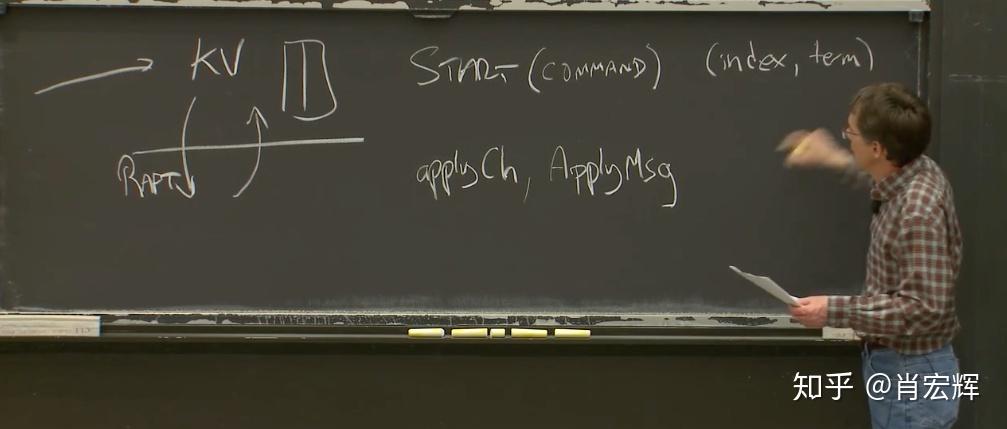 KV START (COMMAND) (index, term)
RAFT applyCh, ApplyMsg
知乎 @肖宏辉